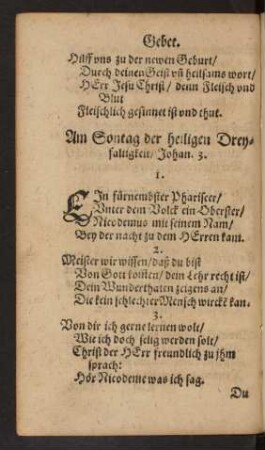 Gebet.
Hilff vns zu der newen Geburt/
Durch deinen Geist vñ heilsams wort/
HErr Jesu Christ/ denn Fleisch vnd
Blut
Fleischlich gesinnet ist vnd thut.
Am Sontag der heiligen Drey-
faltigkeit/ Johan. 3.
1.
EIn fürnembster Phariseer/
Vnter dem Volck ein Oberster/
Nicodemus mit seinem Nam/
Bey der nacht zu dem HErren kam.
2.
Meister wir wissen/ daß du bist
Von Gott komen/ dein Lehr recht ist/
Dein Wunderthaten zeigens an/
Die kein schlechter Mensch wircke kan.
3.
Von dir ich gerne lernen wolt/
Wie ich doch selig werden solt/
Christ der HErr freundlich zu jhm
sprach:
Hör Nicodeme was ich sag.
Du